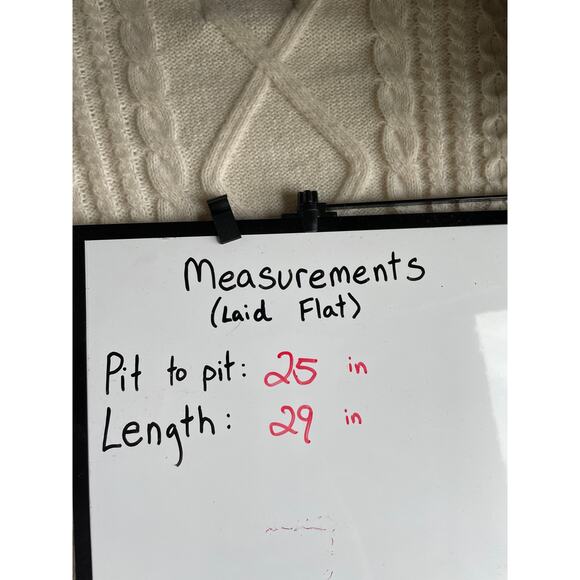 Measurements
(Laid Flat)
Pit to pit: 25 in
Length: 29 in